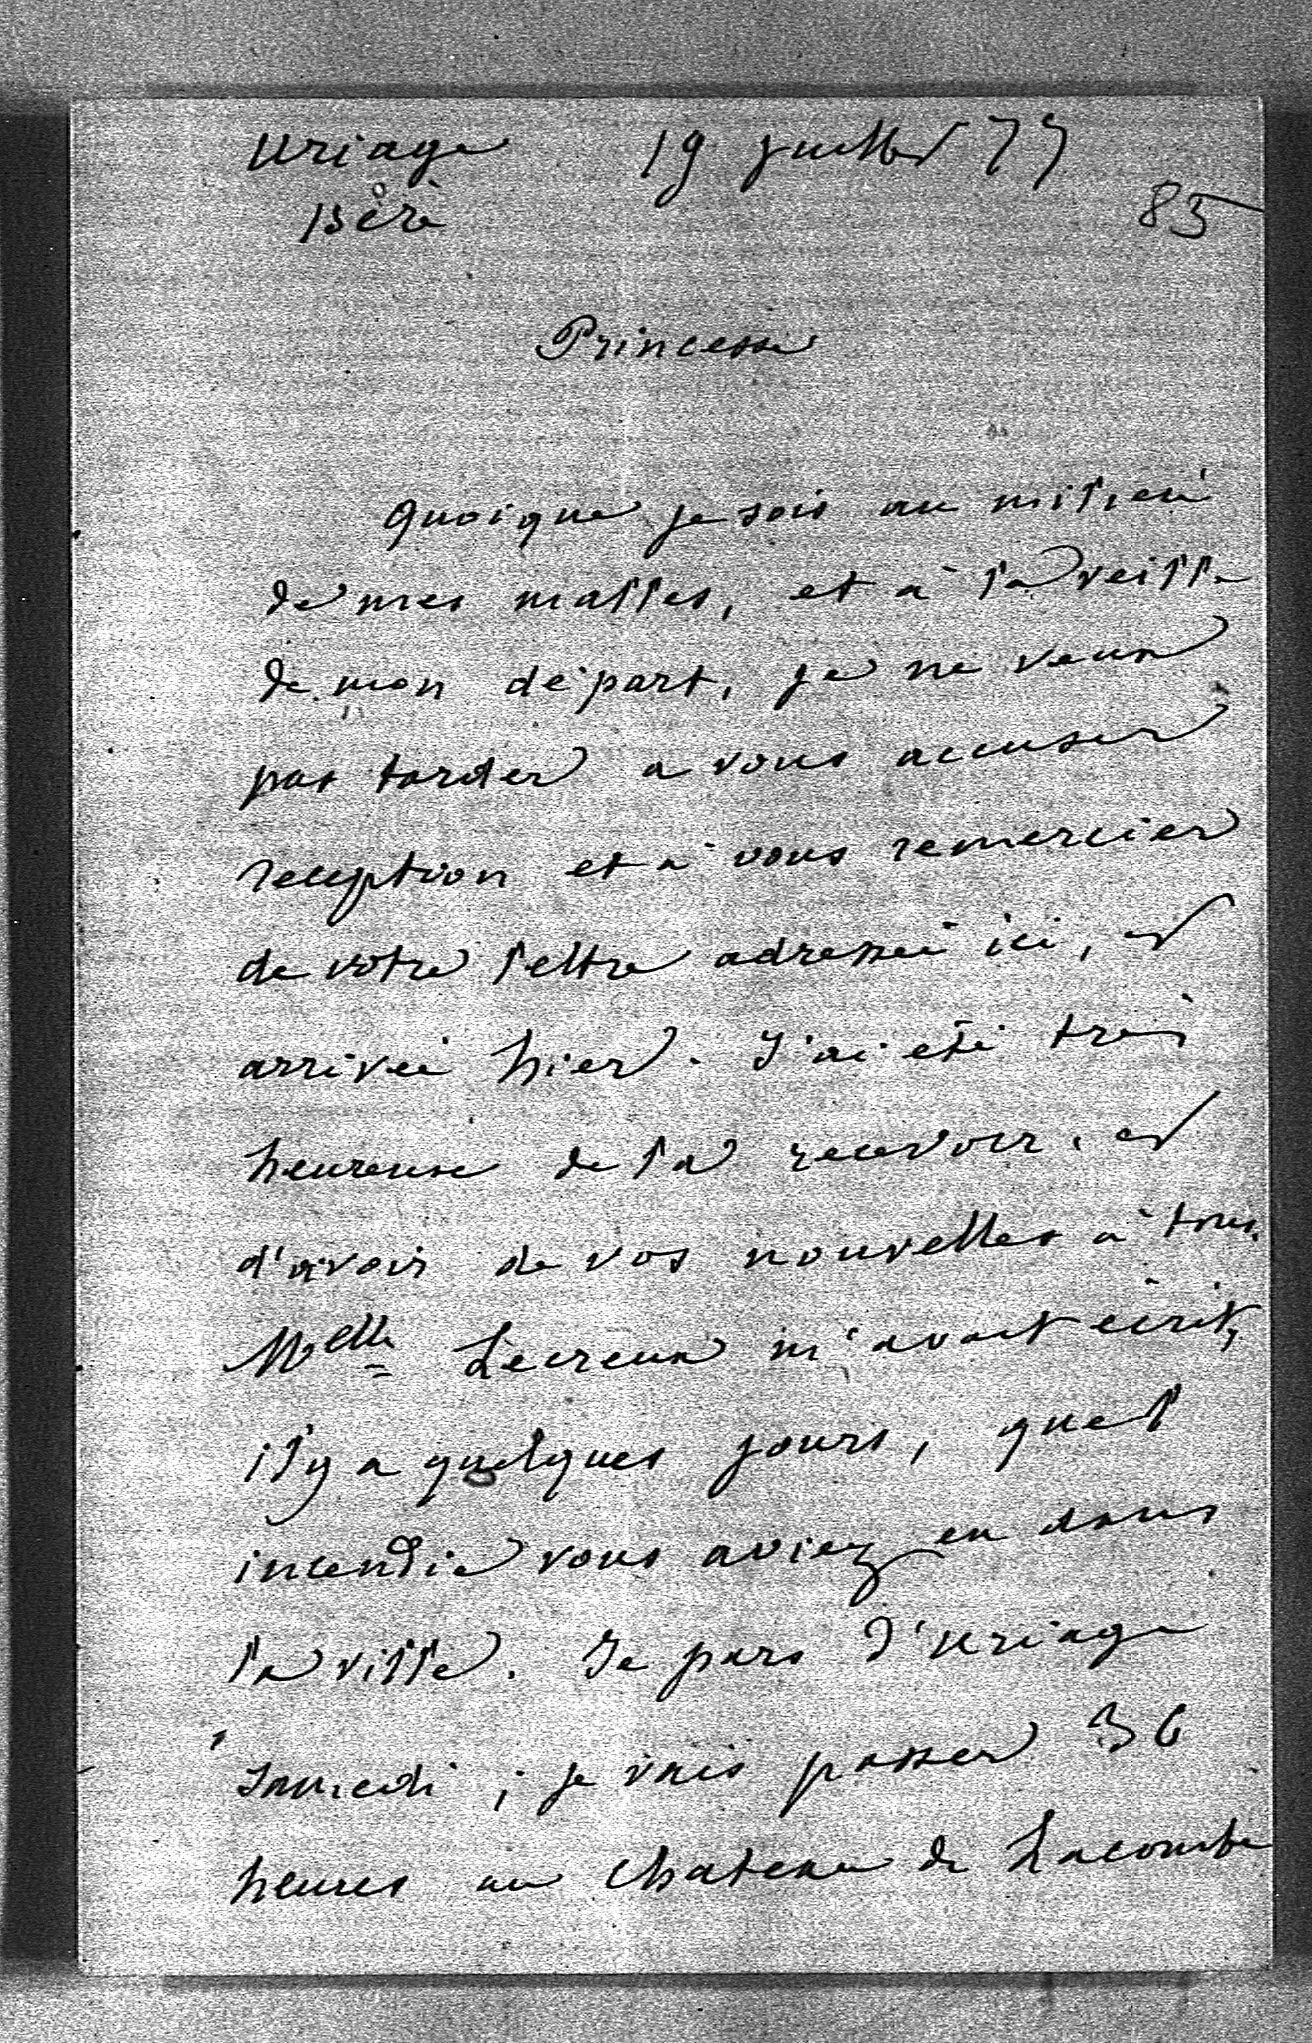 Uriage 19 juillet 77
Isère
85
Princesse
Quoique je sois au milieu
de mes malles, et à la veille
de mon départ, je ne veux
pas tarder a vous accuser
reception et à vous remercier
de votre lettre adressée ici, et
arrivée hier. J'ai été très
heureuse de la recevoir, et
d'avoir de vos nouvelles à tous.
Melle Lecreux m'avait écrit,
il y a quelques jours, quel
incendie vous aviez eu dans
la ville. Je pars d'Uriage
samedi ; je vais passer 36
heures au chateau de Lacombe